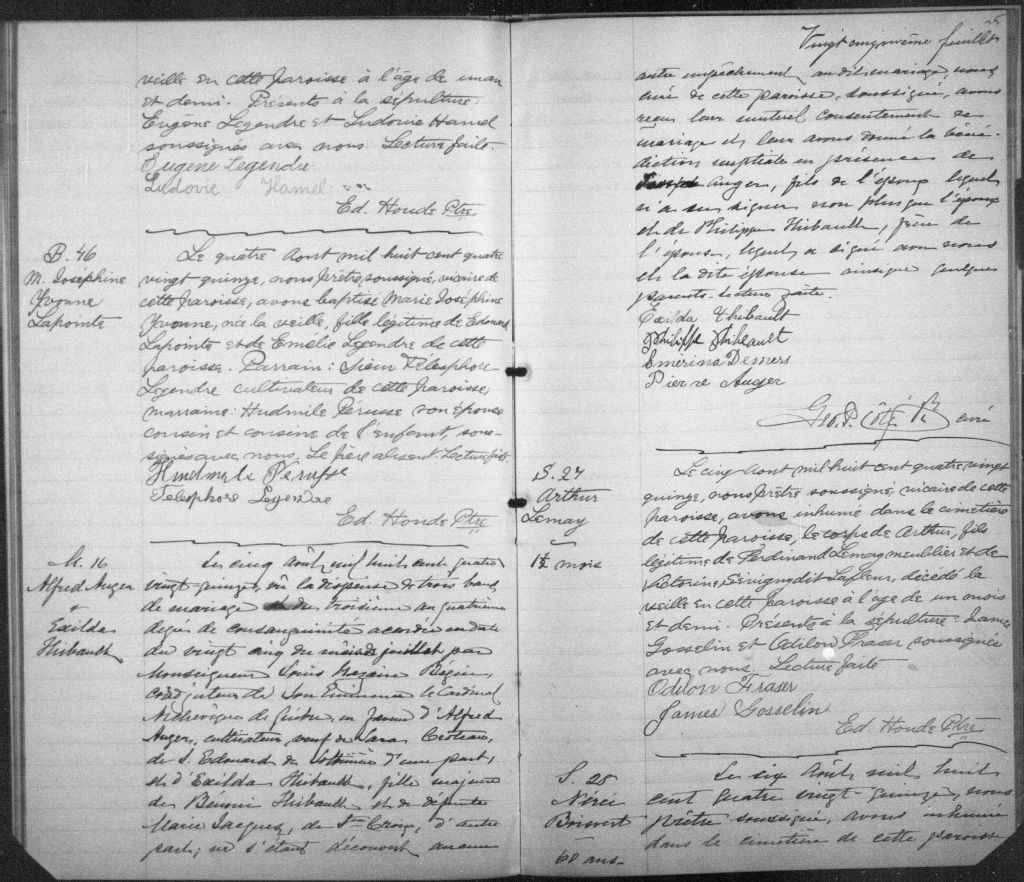 veille en cette paroisse à l'âge de un an
et demi. Présents à la sépulture:
Eugène Legendre et Ludovie Hamel
soussignés avec nous. Lecture faite.
Eugène Legendre
Ludovie Hamel
Ed. Houde Ptre
B. 46
M. Joséphine
Yvonne
Lapointe
Le quatre Aout mil huit cent quatre
vingt quinze, nous prêtre, soussigné, vicaire de
cette paroisse, avons baptisé Marie Joséphine
Yvonne, née la veille, fille légitime de Edouard
Lapointe et de Emélie Legendre de cette
paroisse. Parrain: Sieur Télesphore
Legendre cultivateur de cette paroisse,
marraine: Hudmile Pérusse son épouse
cousin et cousine de l'enfant, sous-
signés avec nous. Le père absent Lecture faite.
Hudmile Pérusse
Telesphore Legendre
Ed. Houde Ptre
M. 16
Alfred Auger
+
Exilda
Thibault
Le cinq Août mil huit cent quatre
vingt-quinze, vu la dispense de trois bans
de mariage et du troisième au quatrième
degré de consanguinité accordée en date
du vingt cinq du mois de juillet par
Monseigneur Louis Nazaire Bégin,
coadjuteur de Son Eminence le Cardinal
Archevêque de Québec, en faveur d'Alfred
Auger, cultivateur, veuf de Sara Croteau,
de S. Edouard de Lotbinière d'une part,
et d'Exilda Thibault, fille majeure
de Benoni Thibault et de défunte
Marie Jacques, de Ste Croix, d'autre
part; ne s'étant découvert aucun
25
Vingt cinquième feuillet
autre empêchement au dit mariage, nous
curé de cette paroisse, soussigné, avons
reçu leur mutuel consentement de
mariage et leur avons donné la béné-
diction nuptiale en présence de
Auger, fils de l'époux lequel
n'a su signer non plus que l'époux
et de Philippe Thibault, frère de
l'épouse, lequel a signé avec nous
et la dite épouse ainsi que quelques
parents. Lecture faite.
Exilda Thibault
Philippe Thibeault
Smérina Demers
Pierre Auger
Geo. P. Côté, Ptr curé
S. 27
Arthur
Lemay
1½ mois
Le cinq Aout mil huit cent quatre vingt
quinze, nous prêtre soussigné, vicaire de cette
paroisse, avons inhumé dans le cimetière
de cette paroisse, le corps de Arthur, fils
légitime de Ferdinand Lemay meublier et de
Victorine Sévigny dit Lafleur, décédé la
veille en cette paroisse à l'âge de un mois
et demi. Présents à la sépulture: James
Gosselin et Odilon Fraser soussignés
avec nous. Lecture faite
Odilon Fraser
James Gosselin
Ed. Houde Ptre
S. 28
Nérée
Boisvert
60 ans.
Le six Août mil huit
cent quatre vingt-quinze, nous
prêtre soussigné, avons inhumé
dans le cimetière de cette paroisse